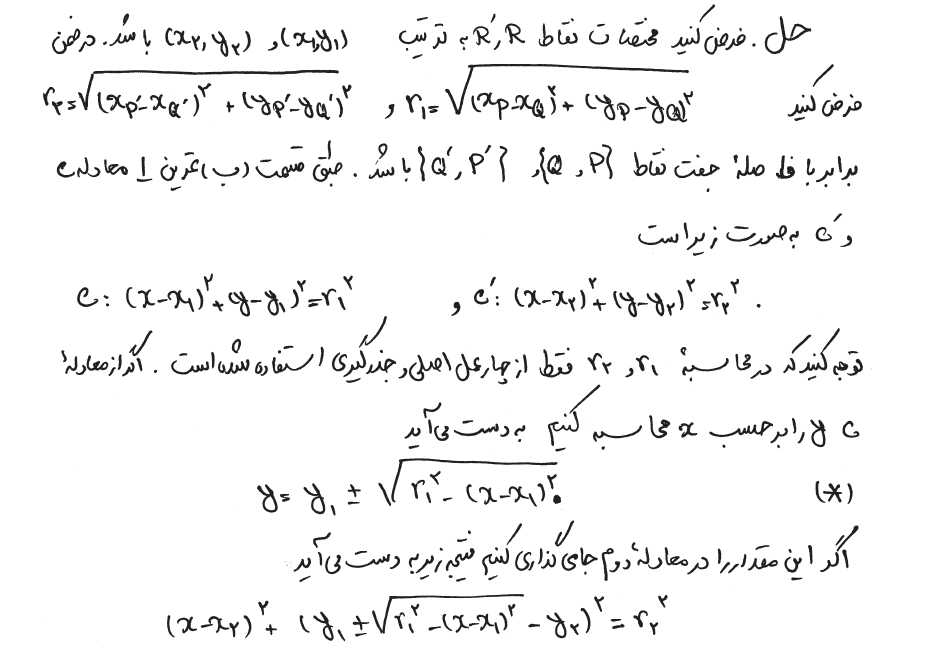 حل. فرض کنید مختصات نقاط R, R′ به ترتیب (x₁,y₁) و (x₂,y₂) باشد. در ضمن
فرض کنید r₁=√((x_P−x_Q)²+(y_P−y_Q)²) و r₂=√((x_P′−x_Q′)²+(y_P′−y_Q′)²)
برابر با فاصلهٔ جفت نقاط {P, Q} و {P′, Q′} باشد. طبق قسمت (ب) تمرین 1 معادله C
و C′ به صورت زیر است
C: (x−x₁)²+(y−y₁)²=r₁² و C′: (x−x₂)²+(y−y₂)²=r₂².
توجه کنید که در محاسبهٔ r₁ و r₂ فقط از چهار عمل اصلی و جذرگیری استفاده شده است. اگر از معادلهٔ
C y را بر حسب x محاسبه کنیم به دست می‌آید
(*) y = y₁ ± √(r₁² − (x−x₁)²).
اگر این مقدار را در معادلهٔ دوم جای گذاری کنیم نتیجه زیر به دست می‌آید
(x−x₂)² + (y₁ ± √(r₁² − (x−x₁)²) − y₂)² = r₂²